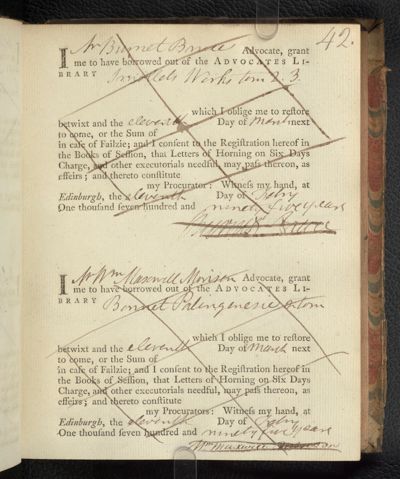 42.
I Mr Burnet Bruce Advocate, grant
me to have borrowed out of the ADVOCATES LI-
BRARY Works tom 2. 3.
which I oblige me to restore
betwixt and the eleventh Day of March next
to come, or the Sum of
in case of Failzie; and I consent to the Registration hereof in
the Books of Session, that Letters of Horning on Six Days
Charge, and other executorials needful, may pass thereon, as
effeirs; and thereto constitute
my Procurator: Witness my hand, at
Edinburgh, the eleventh Day of Febry
One thousand seven hundred and ninety five years
Bruce
I Mr Wm Maxwell Morison Advocate, grant
me to have borrowed out of the ADVOCATES LI-
BRARY Bonnet Palingenesie tom
which I oblige me to restore
betwixt and the eleventh Day of March next
to come, or the Sum of
in case of Failzie; and I consent to the Registration hereof in
the Books of Session, that Letters of Horning on Six Days
Charge, and other executorials needful, may pass thereon, as
effeirs; and thereto constitute
my Procurators: Witness my hand, at
Edinburgh, the eleventh Day of Febry
One thousand seven hundred and ninety five years
Wm Maxwell Morison